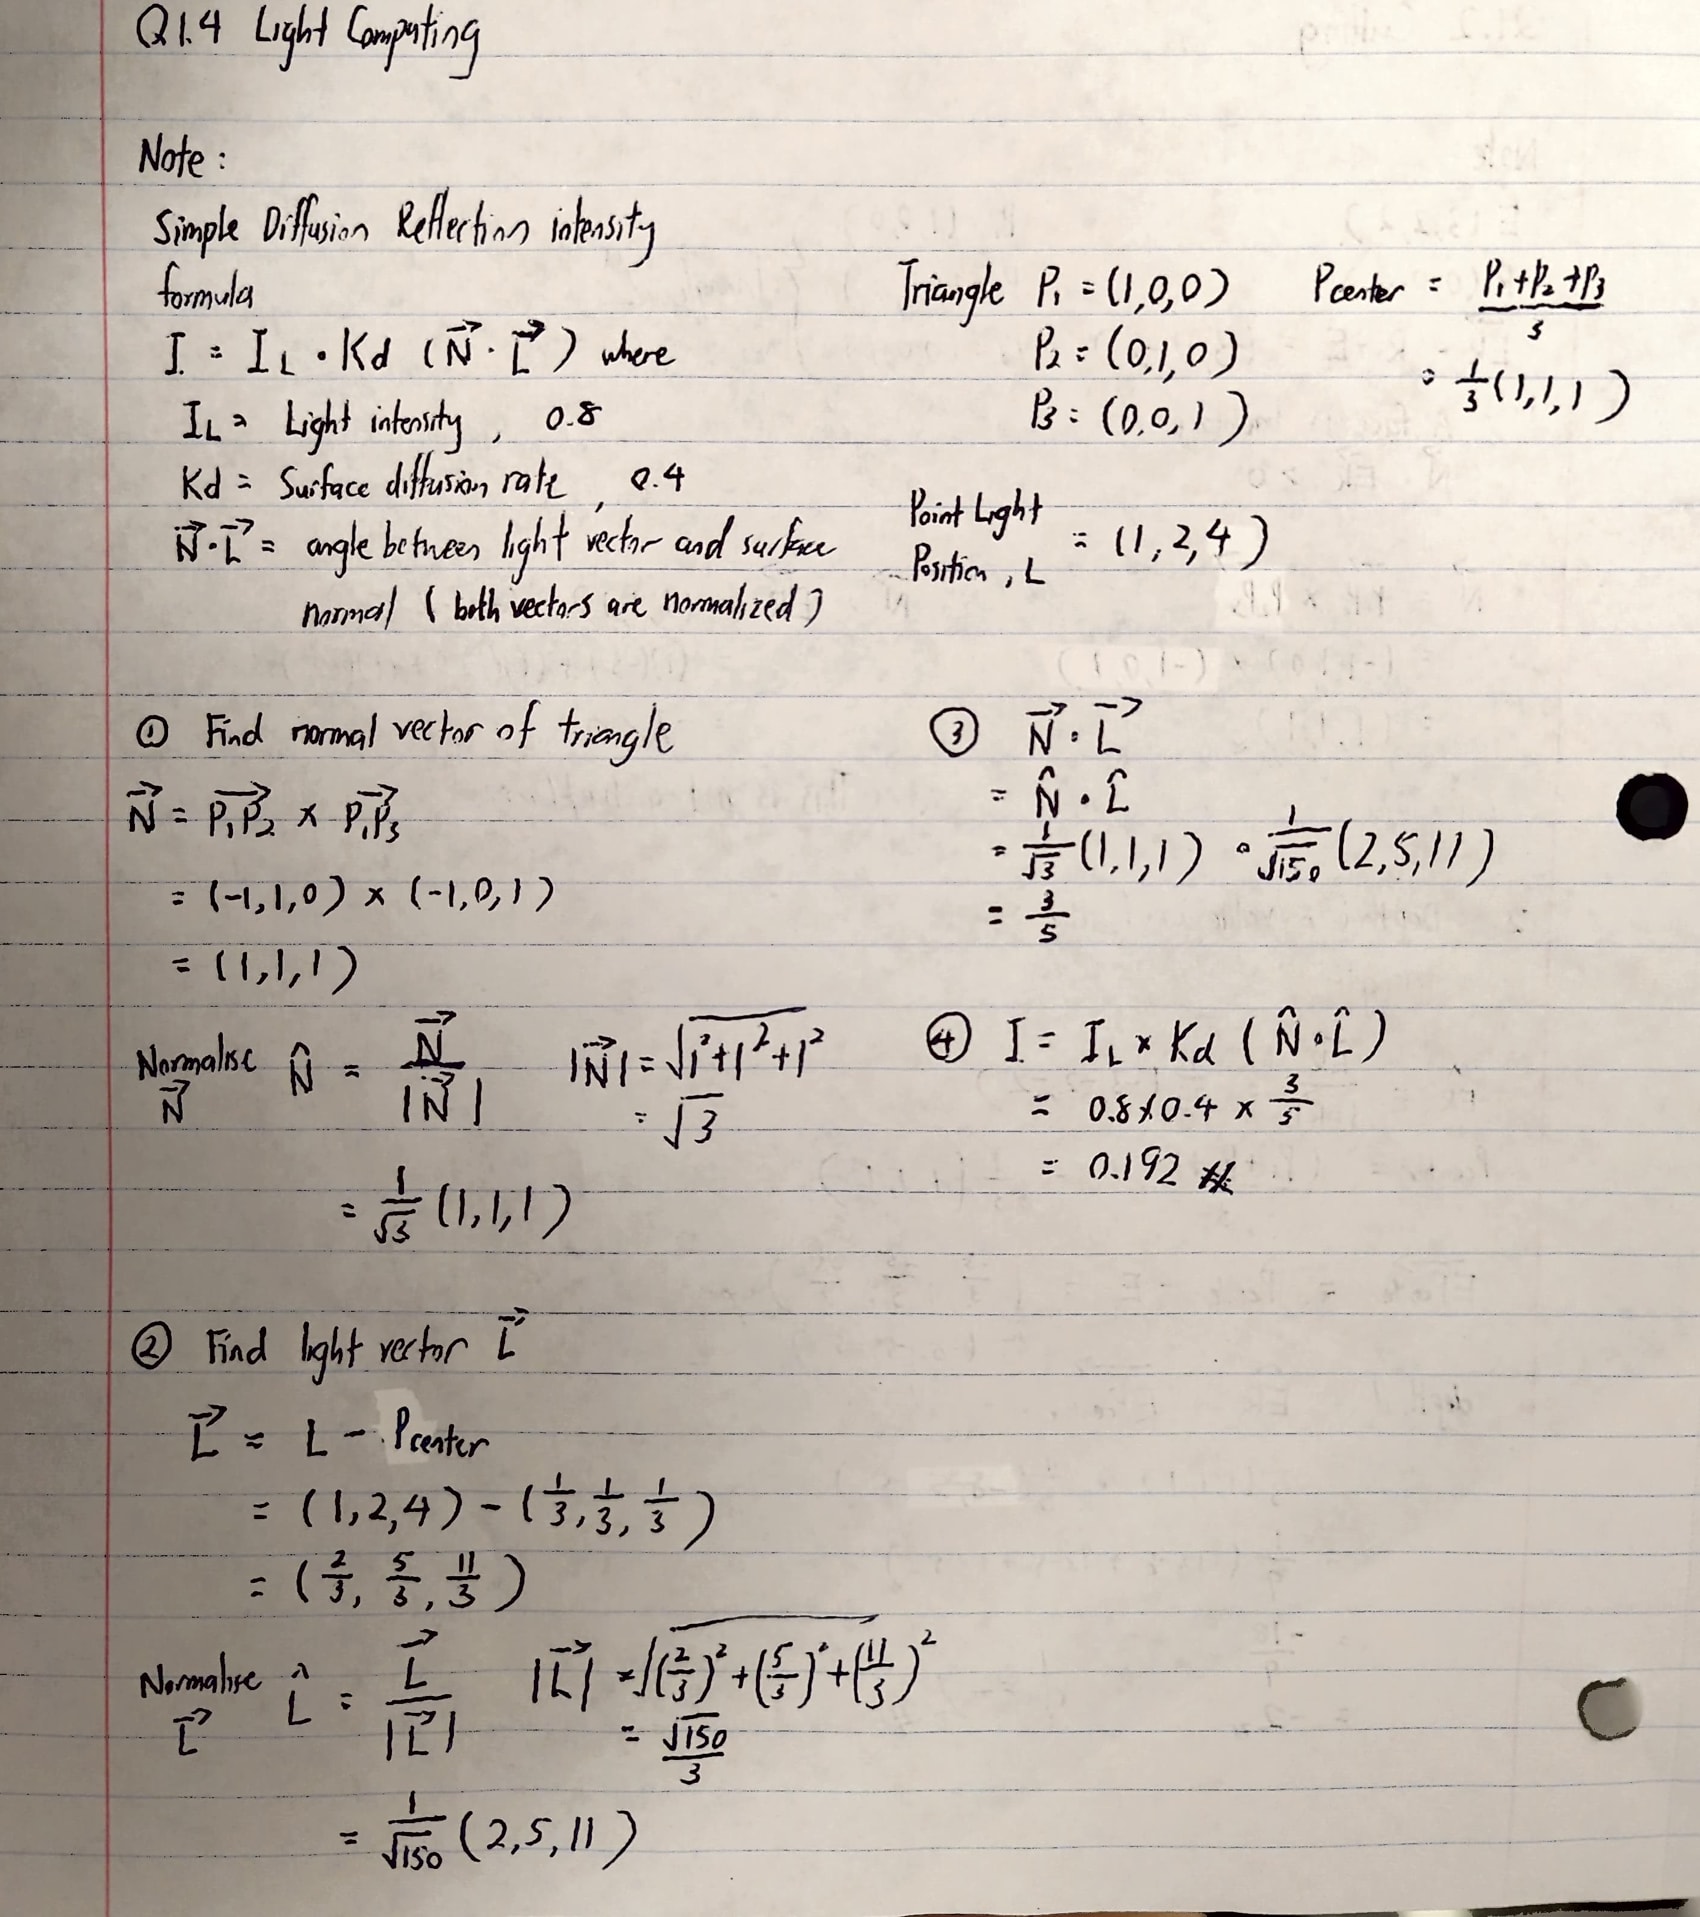 Q1.4 Light Computing
Note :
Simple Diffusion Reflection intensity
formula
I = I_L • Kd (N⃗ · L⃗) where
I_L = Light intensity, 0.8
Kd = Surface diffusion rate, 0.4
N⃗·L⃗ = angle between light vector and surface
normal (both vectors are normalized)
Triangle P₁ = (1,0,0)
P₂ = (0,1,0)
P₃ = (0,0,1)
Pcenter = (P₁+P₂+P₃)/3
= 1/3 (1,1,1)
Point Light
Position, L = (1,2,4)
① Find normal vector of triangle
N⃗ = P₁P₂⃗ x P₁P₃⃗
= (-1,1,0) x (-1,0,1)
= (1,1,1)
Normalise N⃗ N̂ = N⃗/|N⃗| |N⃗| = √(1²+1²+1²)
= √3
= 1/√3 (1,1,1)
② Find light vector L⃗
L⃗ = L - Pcenter
= (1,2,4) - (1/3, 1/3, 1/3)
= (2/3, 5/3, 11/3)
Normalise L⃗ L̂ = L⃗/|L⃗| |L⃗| = √((2/3)² + (5/3)² + (11/3)²)
= √150/3
= 1/√150 (2,5,11)
③ N⃗ · L⃗
= N̂ · L̂
= 1/√3 (1,1,1) · 1/√150 (2,5,11)
= 3/5
④ I = I_L x Kd (N̂·L̂)
= 0.8 x 0.4 x 3/5
= 0.192